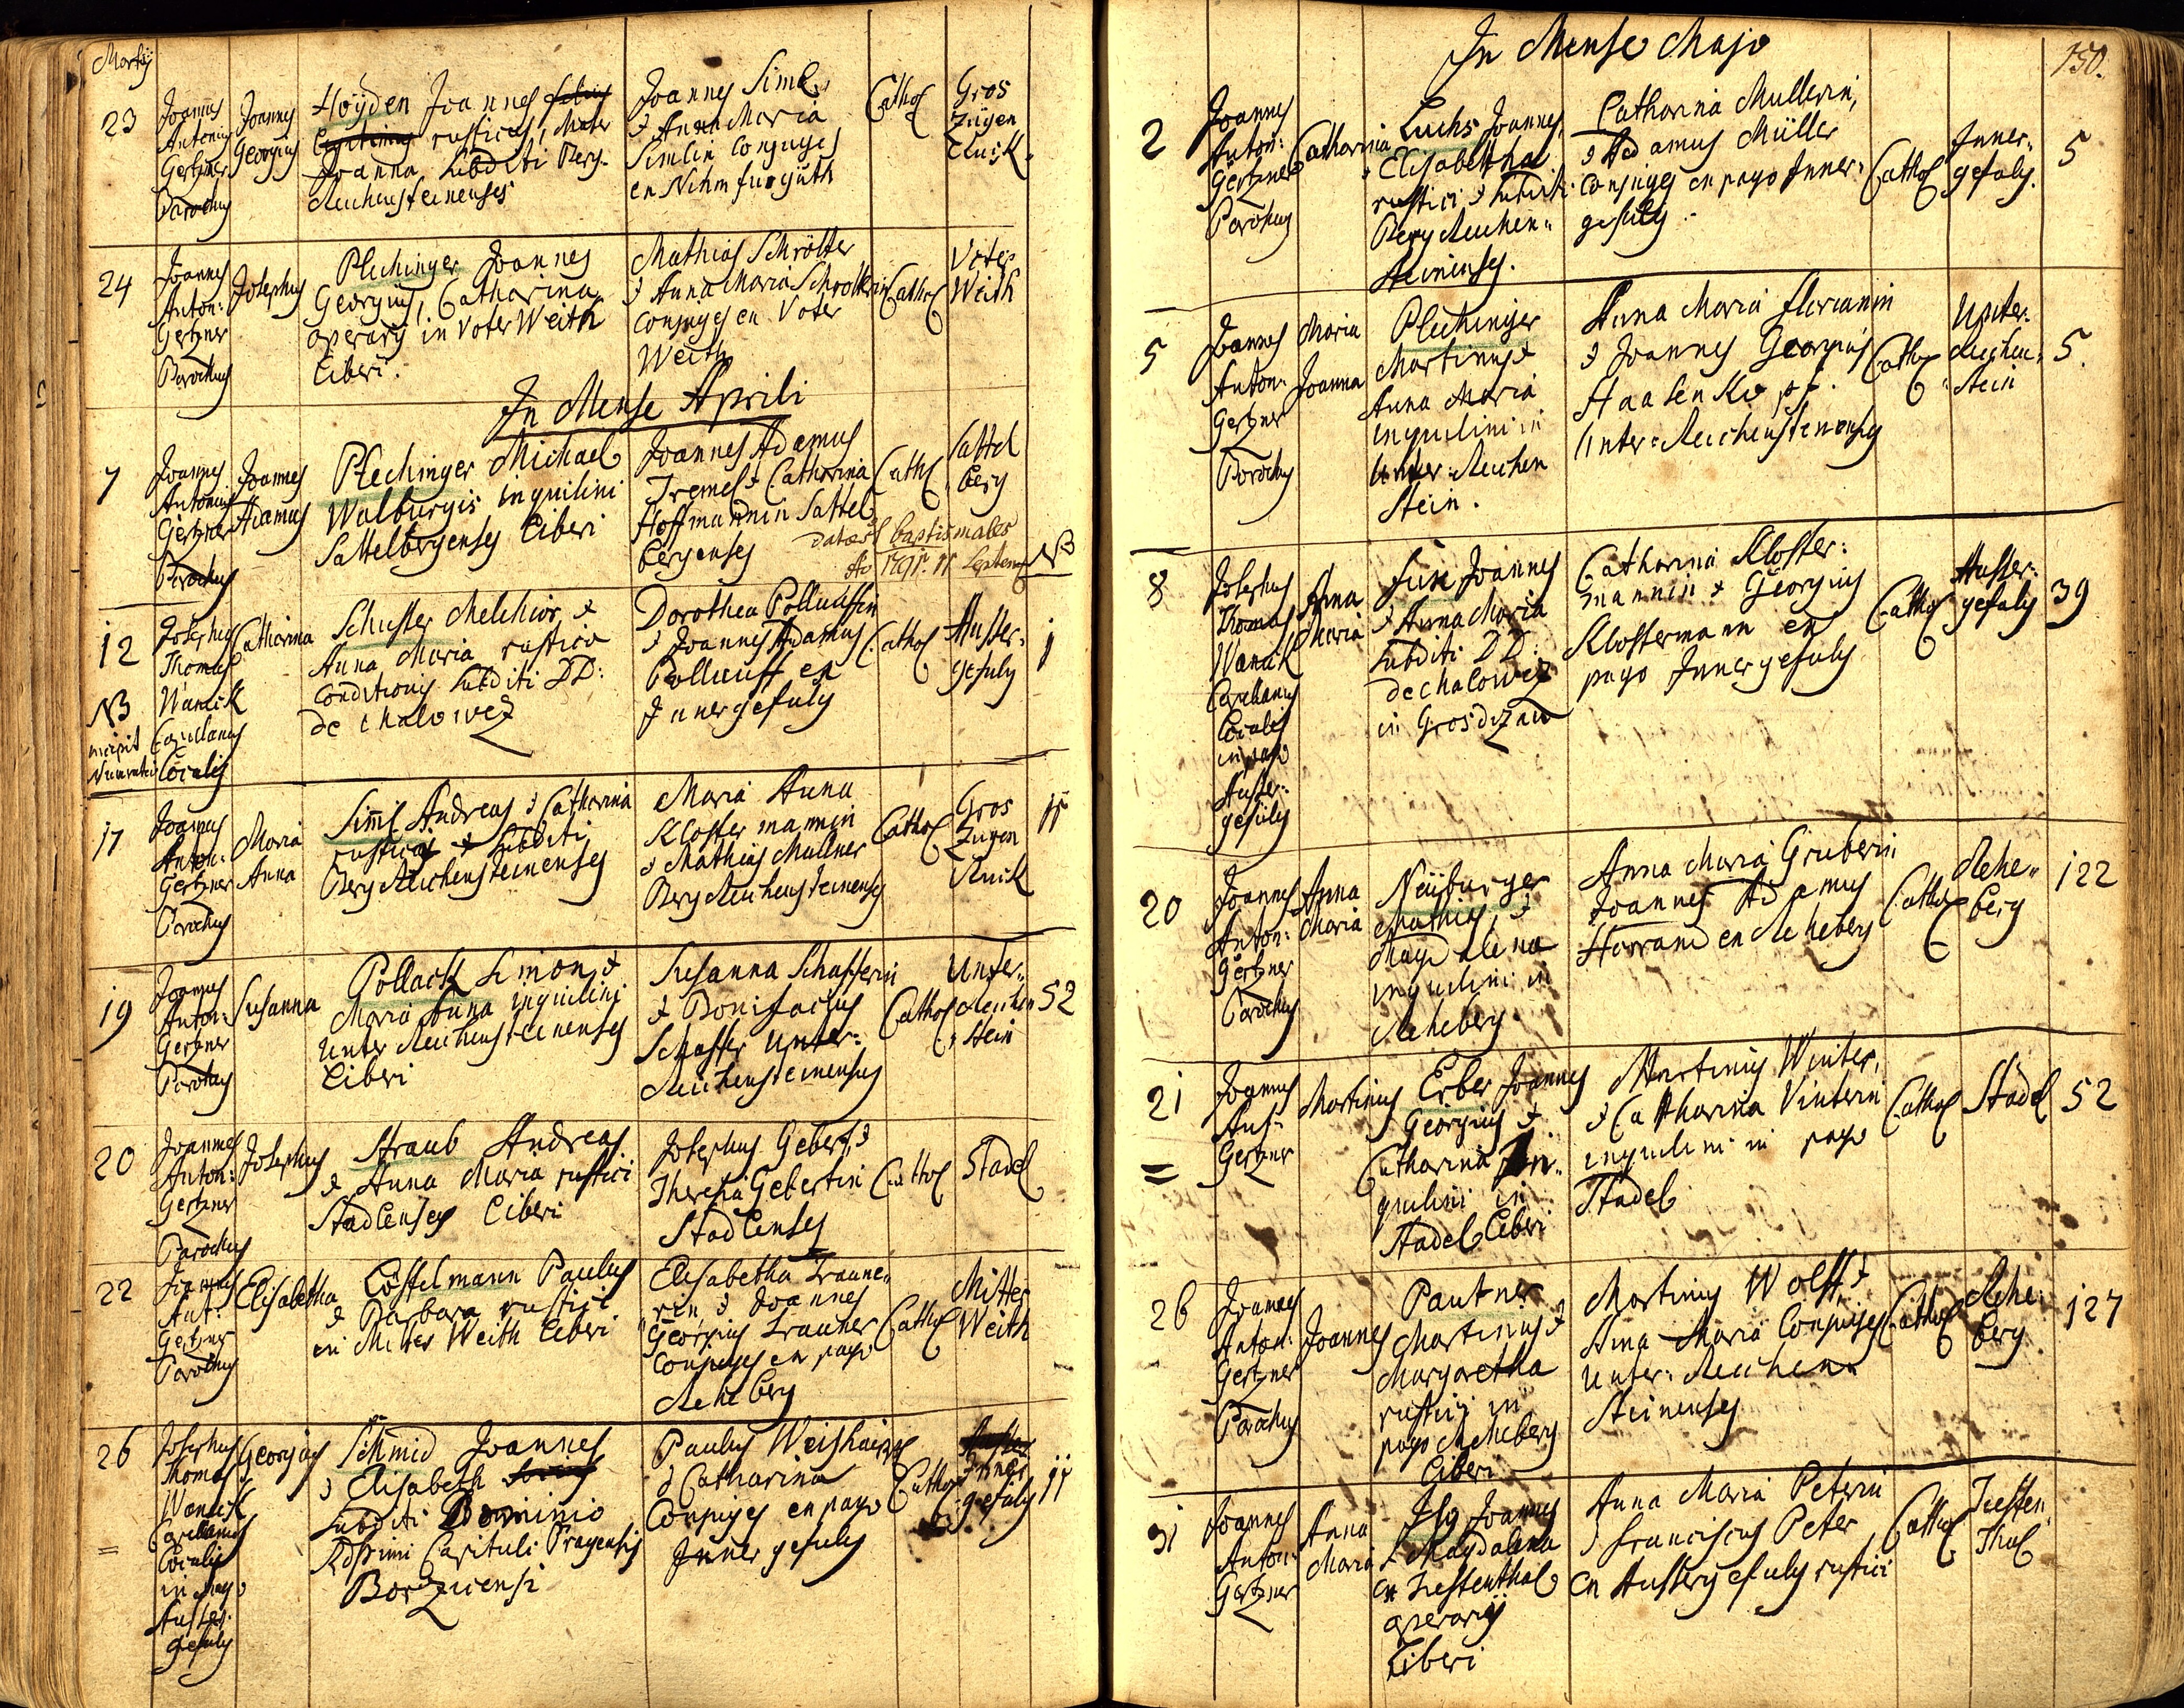 Martij
23
Joannes
Antonius
Gertzner
Parochus
Joannes
Georgius
Höyden Joannes filius
legitimus rusticus, Mater
Joanna, Subditi Berg-
Reichensteinenses
Joannes Siml
& Anna Maria
Simlin Conjuges
Cathol
Gros
Zügen
Ruck
24
Joannes
Anton:
Gertzner
Parochus
Josephus
Plechinger Joannes
Georgius, Catharina
operarij in Voter Weith
Liberi.
Mathias Schrötter
& Anna Maria Schrotterin
conjuges ex Voter
Weith
Cathol
Voter
Weith
In Mense Aprili
7
Joannes
Antonius
Gertzner
Parochus
Joannes
Adamus
Plechinger Michael
Walburgis inquilini
Sattelbergenses Liberi
Joannes Adamus
Tremel & Catharina
Hoffmannin Sattel
bergenses
datae st baptismales
Ao 1791. 11 Septemb
Cath
Sattel
berg
NB
12
NB
incipit
Josephus
Thomas
Wancik
Capellanus
Localis
Catharina
Schuster Melchior &
Anna Maria rustica
Conditionis Subditi DD:
de Chalowez
Dorothea Pollauffin
& Joannes Adamus
Pollauff ex
Innergefuly
Cathol
Ausser-
gefuly
1
17
Joannes
Anton:
Gertzner
Parochus
Maria
Anna
Sim̄l Andreas & Catharina
rustici & Subditi
Berg Reichensteinenses
Maria Anna
Klostermannin
& Mathias Mullner
Berg Reichensteinensis
Cathol
Gros
Zugen
Ruck
11
19
Joannes
Anton:
Gertzner
Parochus
Susanna
Pollack Simon &
Maria Anna inquilini
Unter Reichensteinenses
Liberi
Susanna Schafferin
& Bonifacius
Schaffer Unter:
Reichensteinenses
Cathol
Unter-
Reichen
stein
52
20
Joannes
Anton:
Gertzner
Parochus
Josephus
Straub Andreas
& Anna Maria rustici
Stadlenses Liberi
Josephus Gebert &
Theresia Gebertin
Stadlenses
Cathol
Stadl
22
Joannes
Ant:
Gertzner
Parochus
Elisabetha
Löffelmann Paulus
& Barbara rustici
in Mitter Weith Liberi
Elisabetha Traune-
rin & Joannes
Georgius Trauner
Conjuges ex pago
Reheberg
Cathol
Mitter
Weith
26
Josephus
Thomas
Wancik
Capellanus
Localis
in pago
Ausser-
gefuly
Georgius
Schmid Joannes
& Elisabeth
Subditi Dominio
Rdssimi Capituli Pragensis
Paulus Weishaipl
& Catharina
Conjuges ex pago
Innergefuly
Cathol
Inner
gefuly
11
In Mense Majo
150.
2
Joannes
Anton:
Gertzner
Parochus
Catharina
Luchs Joannes,
& Elisabetha
rustici & Subditi
Berg Reichen-
steinenses.
Catharina Mullerin,
& Adamus Müller
Conjuges ex pago Inner-
gefuly.
Cathol
Inner-
gefuly.
5
5
Joannes
Anton:
Gertzner
Parochus
Maria
Joanna
Plechinger
Martinus &
Anna Maria
inquilini in
Unter-Reichen
Stein.
Anna Maria Florianin
& Joannes Georgius
Haasenkopf
Unter-Reichensteinensis
Cath
Unter-
Reichen-
stein
5.
8
Josephus
Thomas
Wancik
Capellanus
Localis
in pago
Ausser-
gefuly
Anna
Maria
Fux Joannes
& Anna Maria
Subditi DD:
de Chalowez
in Grosdizau
Catharina Kloster:
mannin & Georgius
Klostermann ex
pago Innergefuly
Cathol
Ausser-
gefuly
39
20
Joannes
Anton:
Gertzner
Parochus
Anna
Maria
Neüburger
Mathias, &
Magdalena
inquilini in
Reheberg.
Anna Maria Gruberin
Joannes Adamus
Harrand ex Reheberg
Cathol
Rehe-
berg
122
21
Joannes
Ant:
Gertzner
Martinus
Erber Joannes
Georgius &
Catharina In-
quilini in
Stadel Liberi
Martinus Winter,
& Catharina Vinterin
inquilini in pago
Stadel
Cathol
Stadl
52
26
Joannes
Anton:
Gertzner
Parochus
Joannes
Pautner
Martinus &
Margaretha
rustici in
pago Reheberg
Liberi
Martinus Wolff, &
Anna Maria Conjuges
Unter-Reichen-
steinenses
Cathol
Rehe-
berg
127
31
Joannes
Anton:
Gertzner
Anna
Maria
Joannes
& Magdalena
ex Tieffenthal
operarij
Liberi
Anna Maria Peterin
& Franciscus Peter
ex Aussergefuly rustici
Cathol
Tieffen
Thal